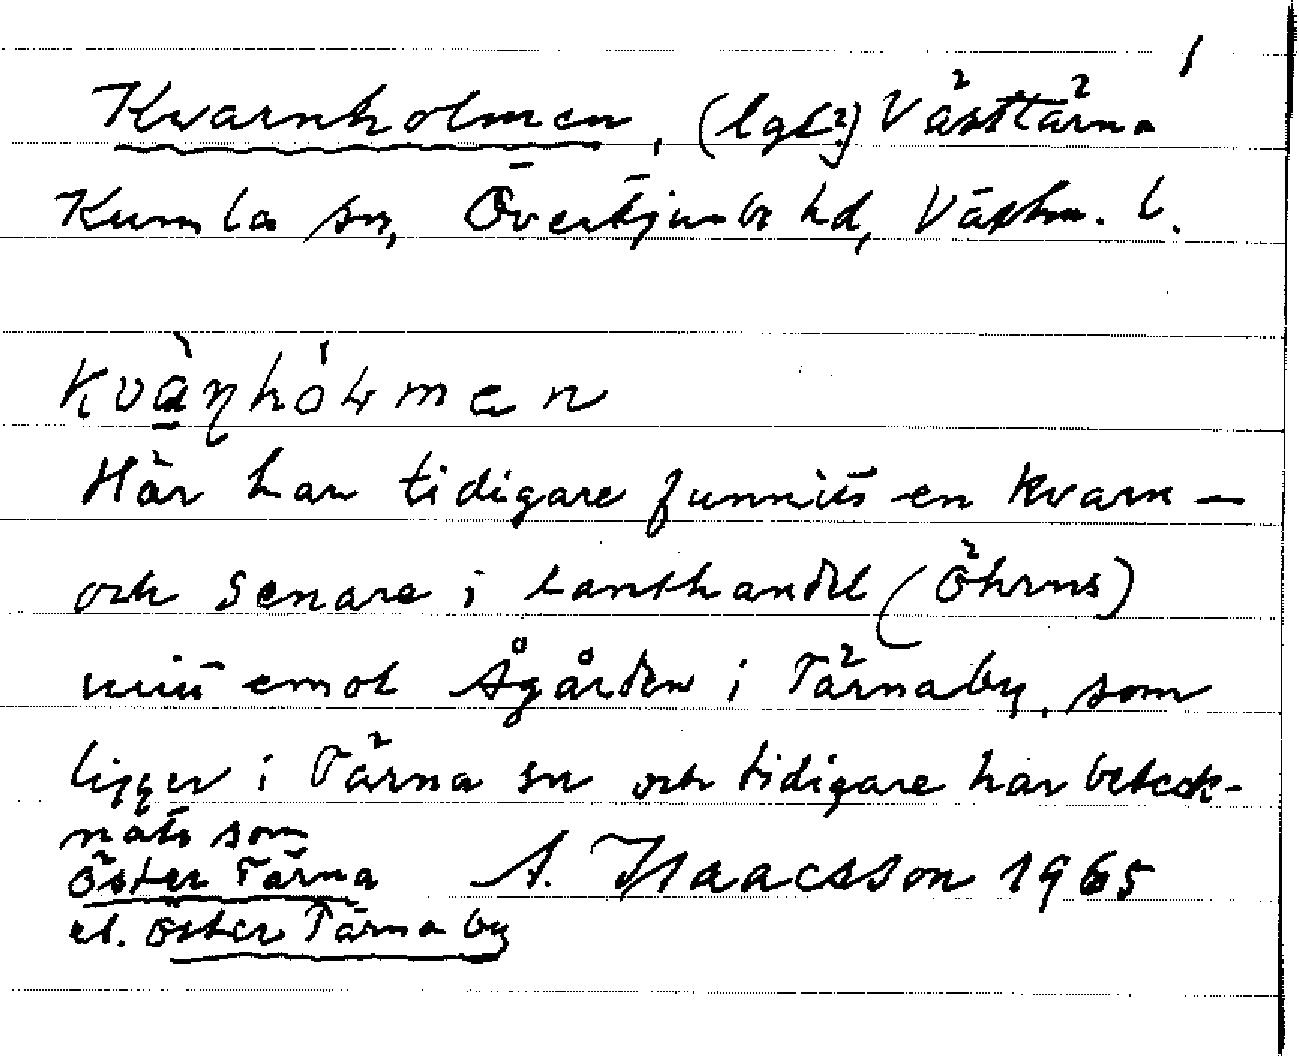 Kvarnholmen, (lgh?) Västtärna
Kumla sn, Övertjurbo hd, Västm. l.
Kvàṇhów men
Här har tidigare funnits en kvarn –
och senare i lanthandel (Öhrns)
mitt emot Ågården i Tärnaby, som
ligger i Tärna sn och tidigare har beteck-
nats som
Öster Tärna A. Isaacsson 1965
el. Öster Tärna by